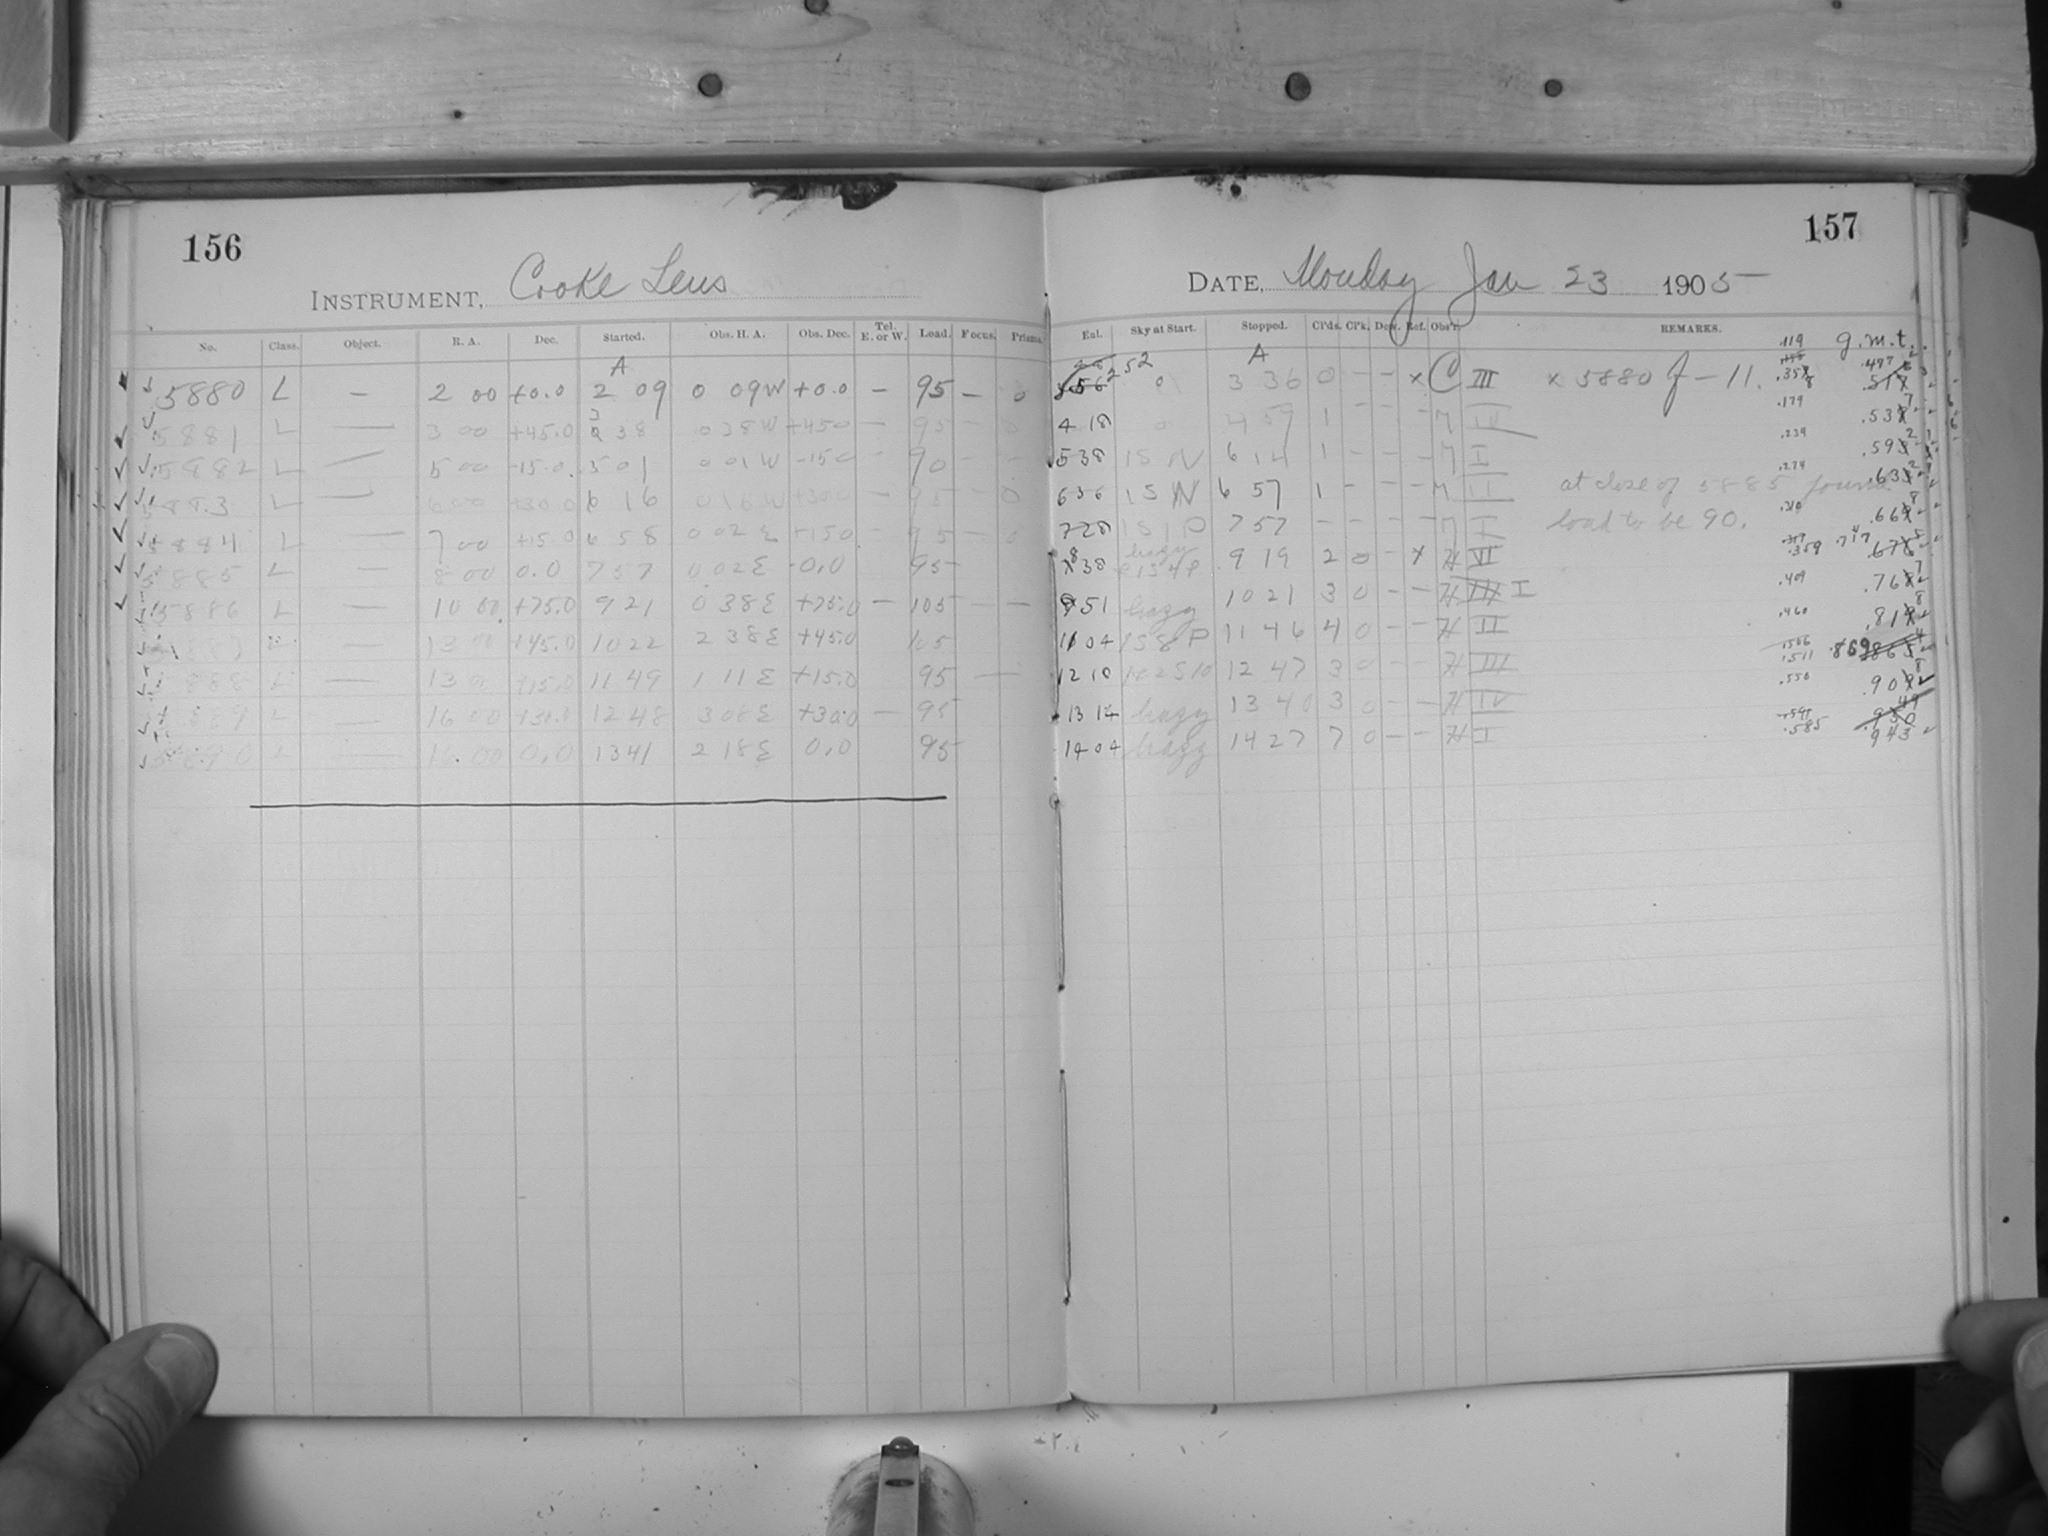 156
INSTRUMENT, Cooke Lens
No. Class. Object. R. A. Dec. Started. Obs. H. A. Obs. Dec. Tel. E. or W. Load. Focus. Prisms.
A
5880 L — 2 00 +0.0 2 09 0 09W +0.0 — 95 — 0
5881 L — 3 00 +45.0 3 38 0 38W +45.0 — 95 — 0
5882 L — 5 00 -15.0 5 01 0 01W -15.0 — 90 — —
5883 L — 6 00 +30.0 6 16 0 16W +30.0 — 95 — 0
5884 L — 7 00 +15.0 6 58 0 02E +15.0 — 95 — 0
5885 L — 8 00 0.0 7 57 0 02E 0.0 95
5886 L — 10 00 +75.0 9 21 0 38E +75.0 — 105 — —
5887 — 13 00 +45.0 10 22 2 38E +45.0 105
5888 L — 13 00 +15.0 11 49 1 11E +15.0 95 —
5889 L — 16 00 +30.0 12 48 3 08E +30.0 — 95
5890 L — 16 00 0.0 13 41 2 18E 0.0 95
157
DATE, Monday Jan 23 1905
Eal. Sky at Start. Stopped. Cl'ds. Cl'k. Dew. Ref. Obs'r. REMARKS.
.119 g.m.t.
A
252 0 3 36 0 — — x C III x 5880 J – 11.
4 18 0 4 59 1 — — — M IV .179 .537
5 38 1 S N 6 14 1 — — — M I .234 .592
6 36 1 S N 6 57 1 — — — M II at close of 5885 found .274 .632
7 28 1 S 1 P 7 57 — — — — M I load to be 90. .310 .668
8 38 hazy 9 19 2 0 — x H VI .359 .717
9 51 hazy 10 21 3 0 — — H I .409 .767
11 04 1 S 8 P 11 46 4 0 — — H II .460 .818
12 18 12 47 3 0 — — H III .511 .869
13 14 hazy 13 40 3 0 — — H IV .550 .908
14 04 hazy 14 27 7 0 — — H I .585 .943